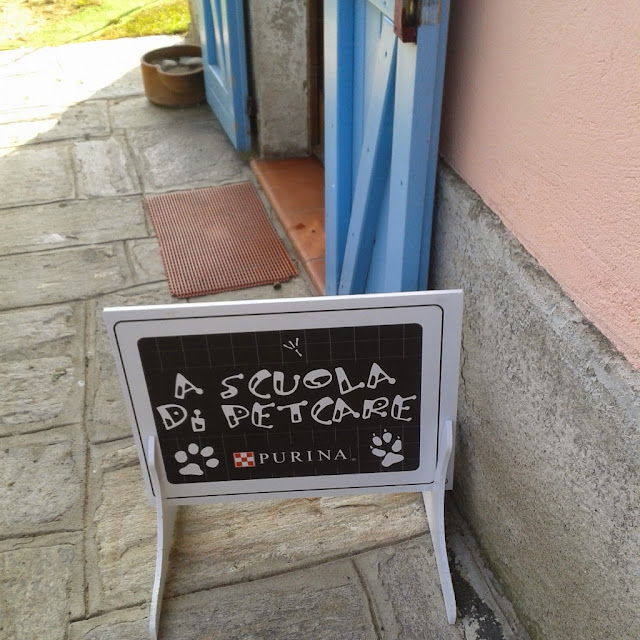 A SCUOLA
Di PETCARE
PURINA